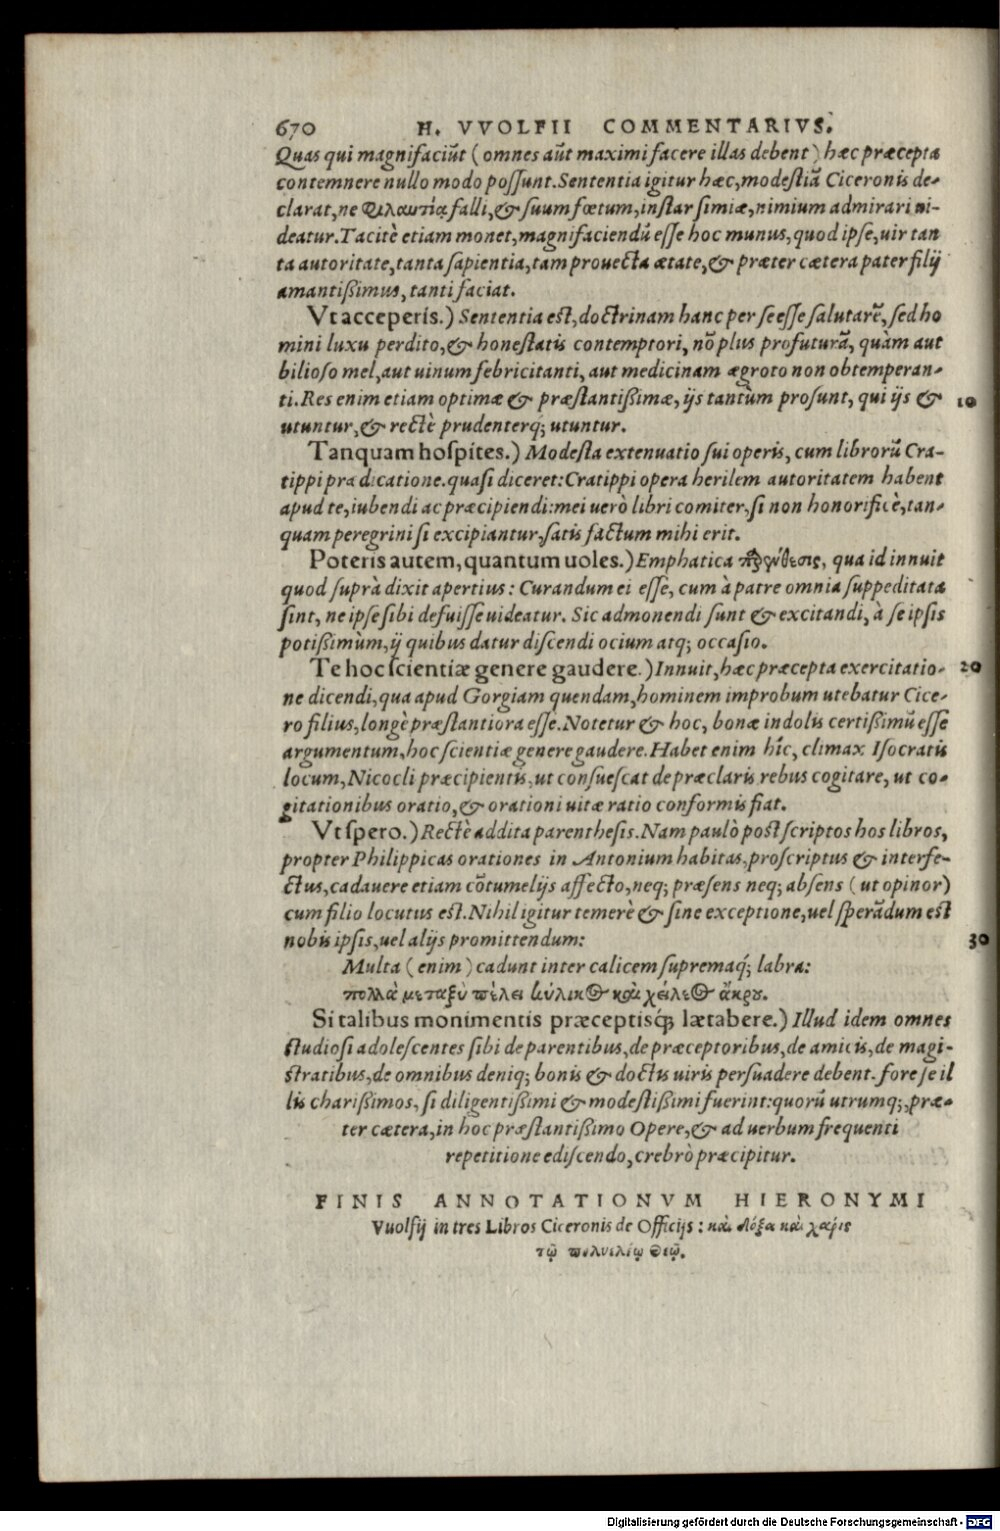 670 H. VVOLFII COMMENTARIVS.
Quas qui magnifaciũt (omnes aũt maximi facere illas debent) hæc præcepta
contemnere nullo modo possunt. Sententia igitur hæc, modestiã Ciceronis de-
clarat, ne φιλαυτίᾳ falli, & suum fœtum, instar simiæ, nimium admirari ui-
deatur. Tacitè etiam monet, magnifaciendũ esse hoc munus, quod ipse, uir tan
ta autoritate, tanta sapientia, tam prouecta ætate, & præter cætera pater filij
amantißimus, tanti faciat.
Vt acceperis.) Sententia est, doctrinam hanc per se esse salutarẽ, sed ho
mini luxu perdito, & honestatis contemptori, nõ plus profuturã, quàm aut
bilioso mel, aut uinum febricitanti, aut medicinam ægroto non obtemperan-
ti. Res enim etiam optimæ & præstantißimæ, ijs tantùm prosunt, qui ijs & 10
utuntur, & rectè prudenterq; utuntur.
Tanquam hospites.) Modesta extenuatio sui operis, cum librorũ Cra-
tippi prædicatione. quasi diceret: Cratippi opera herilem autoritatem habent
apud te, iubendi ac præcipiendi: mei uerò libri comiter, si non honorificè, tan-
quam peregrini si excipiantur, satis factum mihi erit.
Poteris autem, quantum uoles.) Emphatica πρόσθεσις, qua id innuit
quod suprà dixit apertius: Curandum ei esse, cum à patre omnia suppeditata
sint, ne ipse sibi defuisse uideatur. Sic admonendi sunt & excitandi, à se ipsis
potißimùm, ij quibus datur discendi ocium atq; occasio.
Te hoc scientiæ genere gaudere.) Innuit, hæc præcepta exercitatio- 20
ne dicendi, qua apud Gorgiam quendam, hominem improbum utebatur Cice-
ro filius, longè præstantiora esse. Notetur & hoc, bonæ indolis certißimũ esse
argumentum, hoc scientiæ genere gaudere. Habet enim hîc, climax Isocratis
locum, Nicocli præcipientis, ut consuescat de præclaris rebus cogitare, ut co-
gitationibus oratio, & orationi uitæ ratio conformis fiat.
Vt spero.) Rectè addita parenthesis. Nam paulò post scriptos hos libros,
propter Philippicas orationes in Antonium habitas, proscriptus & interfe-
ctus, cadauere etiam cõtumelijs affecto, neq; præsens neq; absens (ut opinor)
cum filio locutus est. Nihil igitur temerè & sine exceptione, uel sperãdum est
nobis ipsis, uel alijs promittendum: 30
Multa (enim) cadunt inter calicem supremaq́; labra:
πολλὰ μεταξὺ πέλει κύλικος καὶ χείλεος ἄκρου.
Si talibus monimentis præceptisq́; lætabere.) Illud idem omnes
studiosi adolescentes sibi de parentibus, de præceptoribus, de amicis, de magi-
stratibus, de omnibus deniq; bonis & doctis uiris persuadere debent. fore se il
lis charißimos, si diligentißimi & modestißimi fuerint: quorũ utrumq;, præ-
ter cætera, in hoc præstantißimo Opere, & ad uerbum frequenti
repetitione ediscendo, crebrò præcipitur.
FINIS ANNOTATIONVM HIERONYMI
Vuolfij in tres Libros Ciceronis de Officijs: καὶ δόξα καὶ χάρις
τῷ θεῷ.
Digitalisierung gefördert durch die Deutsche Forschungsgemeinschaft - DFG